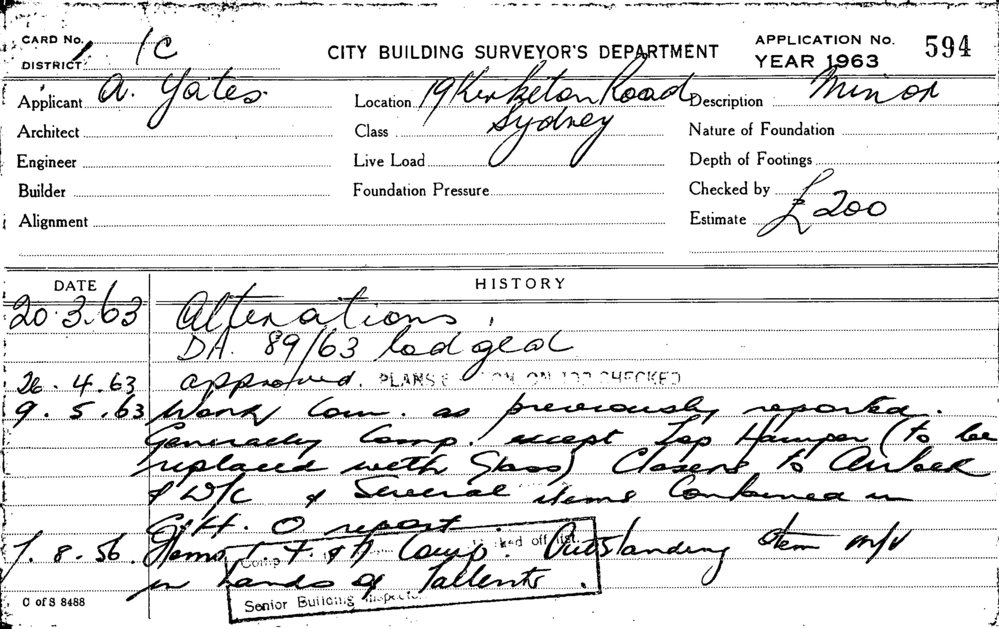 CARD No. 1C
DISTRICT
CITY BUILDING SURVEYOR'S DEPARTMENT
APPLICATION No. 594
YEAR 1963
Applicant A. Yates
Location 19 Kirketon Road
Sydney
Description Minor
Architect
Class
Nature of Foundation
Engineer
Live Load
Depth of Footings
Builder
Foundation Pressure
Checked by
Alignment
Estimate £200
DATE
HISTORY
20.3.63 Alterations.
DA. 89/63 lodged
26.4.63 approved. PLANS ON JOB CHECKED
9.5.63 Work Com. as previously reported.
Generally Comp. except Top Hamper (to be
replaced with Glass) Closers to Airlock
& W/C & Several items Contained in
O report.
7.8.56 Items & Comp. Outstanding item
in hands of
off list.
Senior Building Inspector
C of S 8488